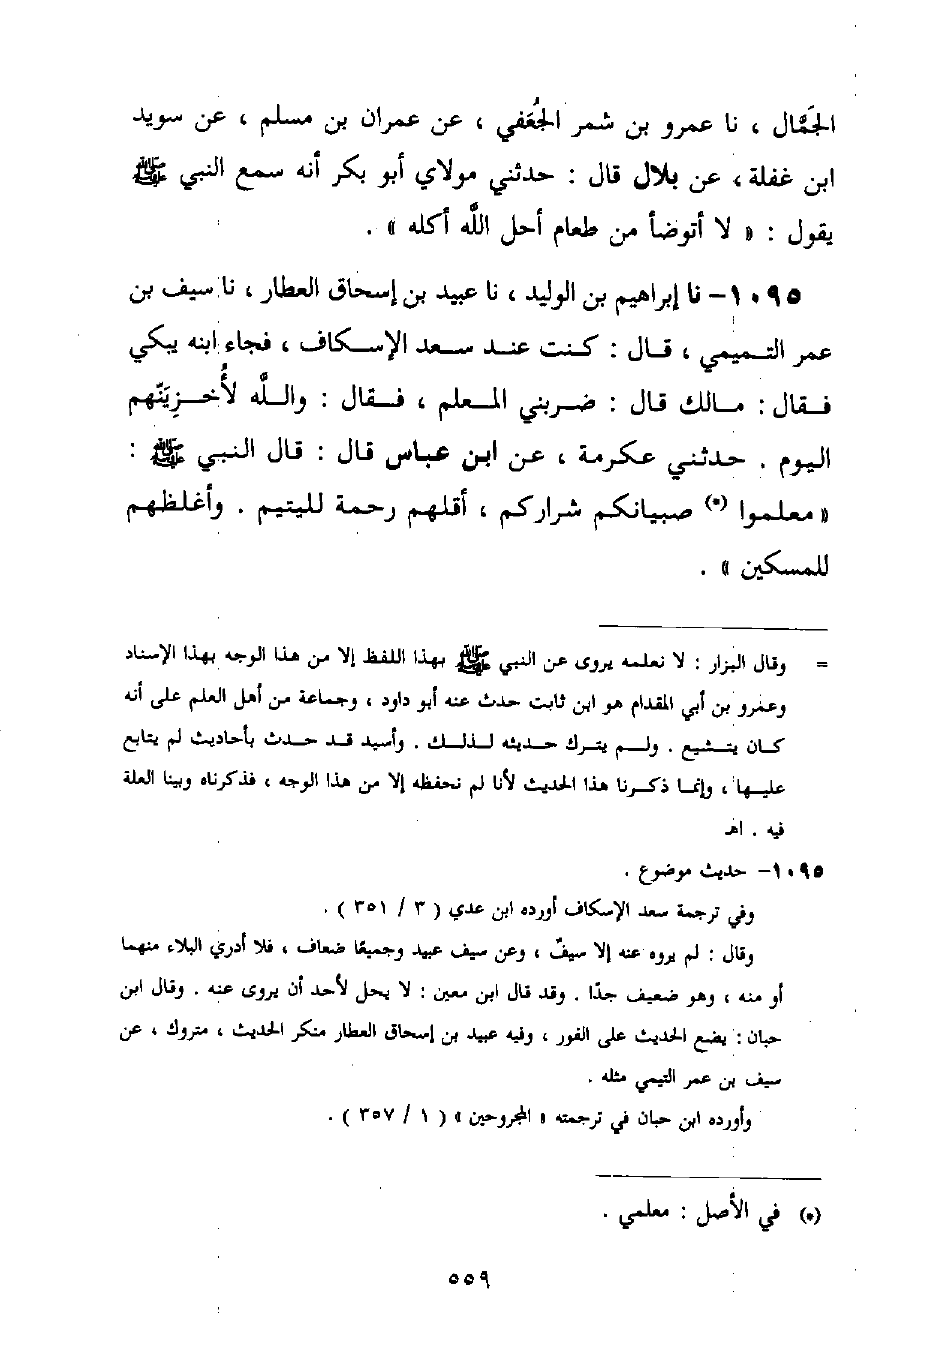 الجَمَّال ، نا عمرو بن شمر الجُعَفي ، عن عمران بن مسلم ، عن سويد
ابن غفلة ، عن بلال قال : حدثني مولاي أبو بكر أنه سمع النبي ﷺ
يقول : « لا أتوضأ من طعام أحل اللَّه أكله » .
١٠٩٥- نا إبراهيم بن الوليد ، نا عبيد بن إسحاق العطار ، نا سيف بن
عمر التميمي ، قال : كنت عند سعد الإسكاف ، فجاء ابنه يبكي
فقال : مالك قال : ضربني المعلم ، فقال : واللَّه لأُخزِيَنّهم
اليوم . حدثني عكرمة ، عن ابن عباس قال : قال النبي ﷺ :
« معلموا (*) صبيانكم شراركم ، أقلهم رحمة لليتيم . وأغلظهم
للمسكين » .
= وقال البزار : لا نعلمه يروى عن النبي ﷺ بهذا اللفظ إلا من هذا الوجه بهذا الإسناد
وعمرو بن أبي المقدام هو ابن ثابت حدث عنه أبو داود ، وجماعة من أهل العلم على أنه
كان يتشيع . ولم يترك حديثه لذلك . وأسيد قد حدث بأحاديث لم يتابع
عليها ، وإنما ذكرنا هذا الحديث لأنا لم نحفظه إلا من هذا الوجه ، فذكرناه وبينا العلة
فيه . اهـ
١٠٩٥- حديث موضوع .
وفي ترجمة سعد الإسكاف أورده ابن عدي ( ٣ / ٣٥١ ) .
وقال : لم يروه عنه إلا سيفٌ ، وعن سيف عبيد وجميعًا ضعاف ، فلا أدري البلاء منهما
أو منه ، وهو ضعيف جدًا . وقد قال ابن معين : لا يحل لأحد أن يروى عنه . وقال ابن
حبان : يضع الحديث على الفور ، وفيه عبيد بن إسحاق العطار منكر الحديث ، متروك ، عن
سيف بن عمر التيمي مثله .
وأورده ابن حبان في ترجمته « المجروحين » ( ١ / ٣٥٧ ) .
(*) في الأصل : معلمي .
٥٥٩